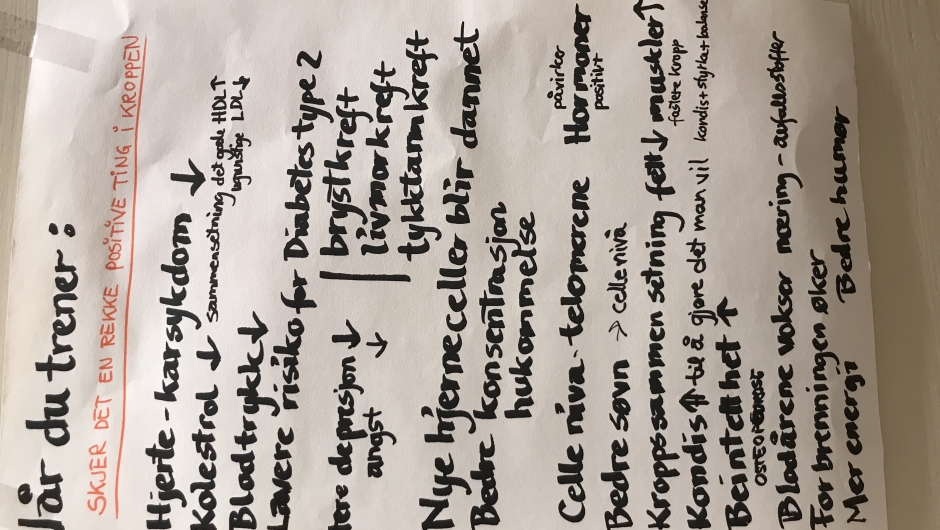 når du trener:
SKJER DET EN REKKE POSITIVE TING i KROPPEN
Hjerte-karsykdom ↓
Kolestrol ↓ sammensetning det gode HDL↑
ugunstige LDL↓
Blodtrykk↓
Lavere risiko for Diabetes type 2
brystkreft
livmorkreft
tykktarmkreft
depresjon ↓
angst ↓
Nye hjerneceller blir dannet
Bedre konsentrasjon
hukommelse
Celle nivå-telomerene Hormoner
påvirker
positivt
Bedre søvn → cellenivå
Kroppssammensetning fett↓ muskler↑
fastere kropp
Kondis↑ til å gjøre det man vil kondis+styrke+balanse
Beintetthet ↑
Blodårene vokser næring-avfallsstoffer
Forbrenningen øker
Mer energi Bedre humør